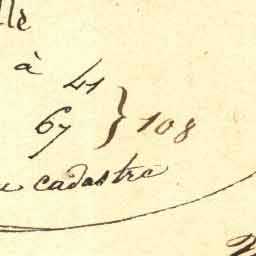 à 41
67 } 108
cadastre